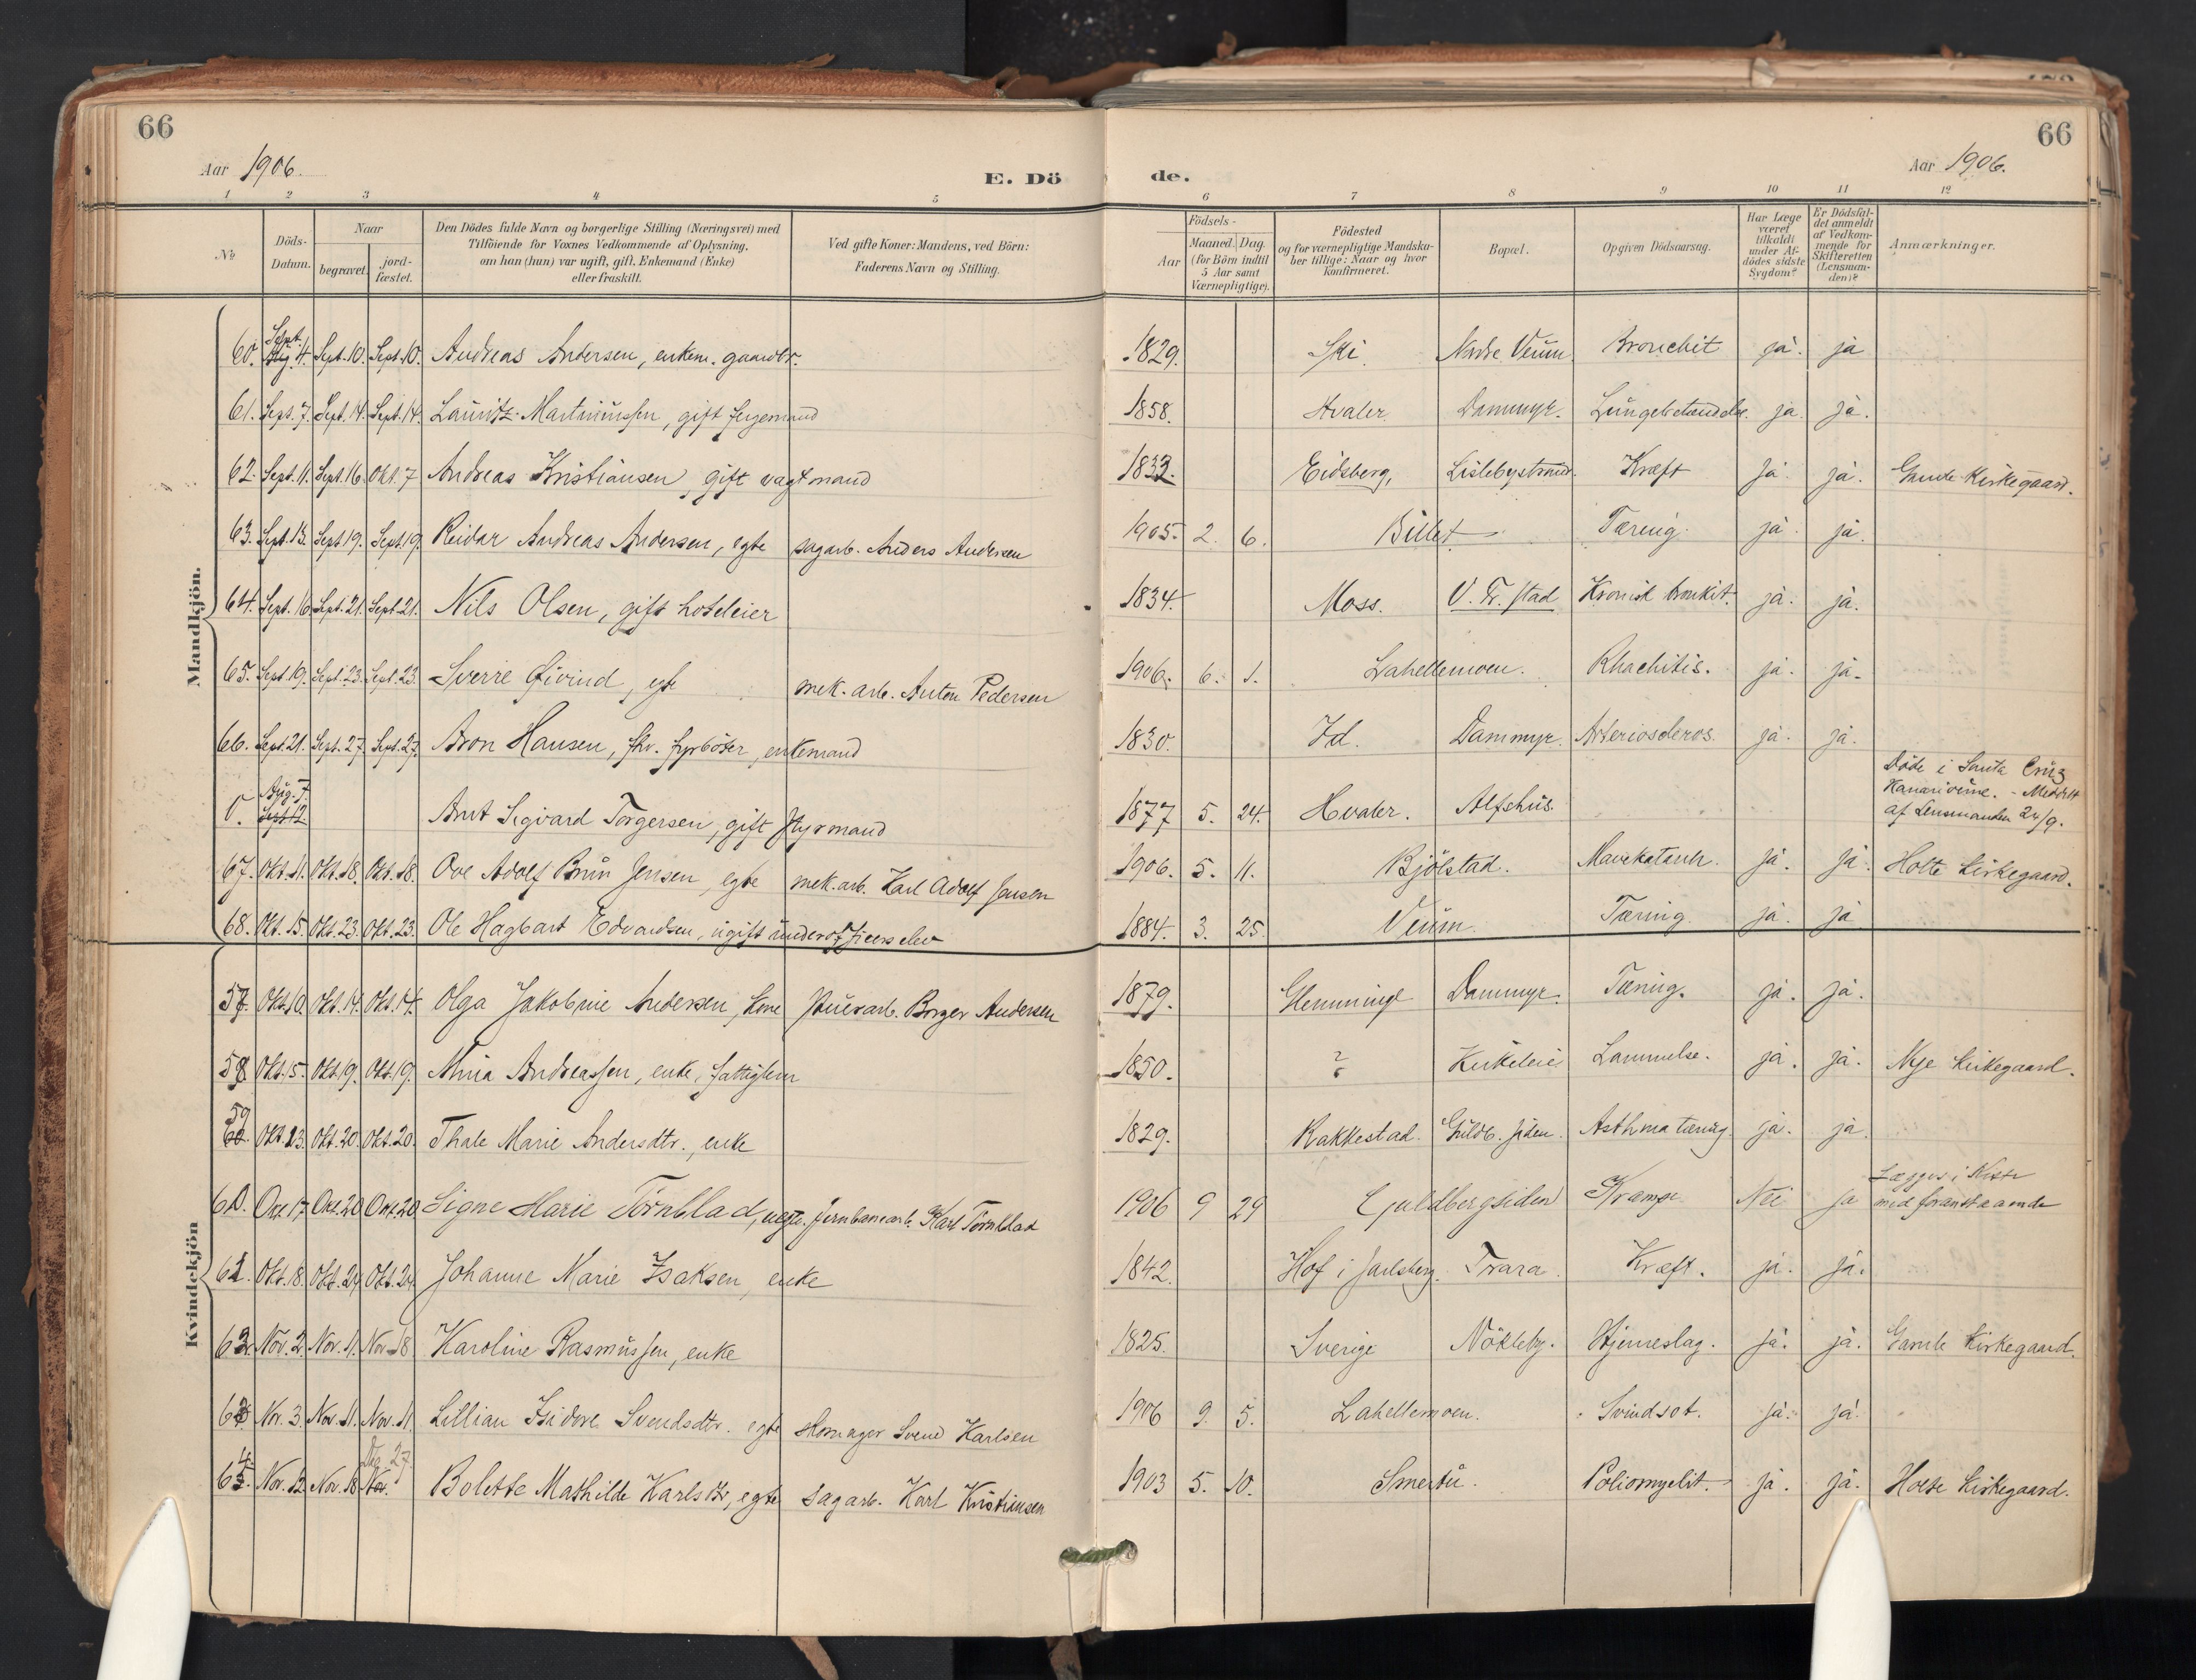 66
66
Aar 1906.
E. Dö
de.
Aar 1906.
1 2 3 4 5 6 7 8 9 10 11 12
№
Döds-
Datum.
Naar
begravet.
jord-
fæstet.
Den Dödes fulde Navn og borgerlige Stilling (Næringsvei) med
Tilföiende for Voxnes Vedkommende af Oplysning.
om han (hun) var ugift, gift. Enkemand (Enke)
eller fraskilt.
Ved gifte Koner: Mandens, ved Börn:
Faderens Navn og Stilling.
Födsels-
Aar
Maaned. Dag.
(for Börn indtil
5 Aar samt
Værnepligtige).
Födested
og for værnepligtige Mandska-
ber tillige: Naar og hvor
Konfirmeret.
Bopæl.
Opgiven Dödsaarsag.
Har Læge
været
tilkaldt
under Af-
dödes sidste
Sygdom?
Er Dödsfal-
det anmeldt
af Vedkom-
mende for
Skifteretten
(Lensman-
den)?
Anmærkninger.
Mandkjön.
60. Sept. 4. Sept. 10. Sept. 10. Andreas Andersen, enkem. gaardbr. 1829. Ski. Nedre Veum Bronchit ja. ja
61. Sept. 7. Sept. 14. Sept. 14. Lauritz Martiniussen, gift fergemand 1858. Hvaler Dammyr. Lungebetændelse. ja. ja.
62. Sept. 11. Sept. 16. Okt. 7 Andreas Kristiansen, gift vagtmand 1833. Eidsberg, Lislebystrand. Kræft ja. ja. Gamle Kirkegaard.
63. Sept. 13. Sept. 19. Sept. 19. Reidar Andreas Andersen, egte sagarb. Anders Andersen 1905. 2. 6. Billet Tæring. ja. ja.
64. Sept. 16. Sept. 21. Sept. 21. Nils Olsen, gift hoteleier 1834. Moss. V. Fr. stad Kronisk bronkit. ja. ja.
65. Sept. 19. Sept. 23. Sept. 23. Sverre Øivind, egte mek. arb. Anton Pedersen 1906. 6. 1. Lahellemoen. Rhachitis. ja. ja.
66. Sept. 21. Sept. 27. Sept. 27. Aron Hansen, fhv. fyrböter, enkemand 1830. Id. Dammyr. Arterioscleros. ja. ja.
0. Aug. 5. Sept. 12. Arnt Sigvard Torgersen, gift styrmand 1877 5. 24. Hvaler. Alfshus.
Døde i Santa Cruz
Kanariøerne. - Meddelt
af Lensmanden 24/9.
67. Okt. 11. Okt. 18. Okt. 18. Ove Adolf Brun Jensen, egte mek. arb. Karl Adolf Jensen 1906. 5. 11. Bjölstad. Mavekatarrh. ja. ja. Holte Kirkegaard.
68. Okt. 15. Okt. 23. Okt. 23. Ole Hagbart Edvardsen, ugift underofficerselev 1884. 3. 25. Veum. Tæring. ja. ja
Kvindekjön
57. Okt. 10. Okt. 14. Okt. 14. Olga Jakobine Andersen, kone stuerarb. Borger Andersen 1879. Glemminge Dammyr. Tæring. ja. ja.
58 Okt. 15. Okt. 19. Okt. 19. Mina Andreassen, enke, fattiglem 1850. ? Kirkeleie Lammelse. ja. ja. Nye Kirkegaard.
59 Okt. 13. Okt. 20. Okt. 20. Thale Marie Andersdtr., enke 1829. Rakkestad. Guldb. siden. Asthma tæring. ja. ja
60. Okt. 17. Okt. 20 Okt. 20 Signe Marie Törnblad, uegte. Jernbanearb. Karl Törnblad 1906 9 29 Guldbergsiden Krampe Nei ja
Lægges i Kiste
med foranstaaende
61. Okt. 18. Okt. 24. Okt. 24. Johanne Marie Isaksen, enke 1842. Hof i Jarlsberg. Trara Kræft. ja. ja.
62. Nov. 2. Nov. 11. Nov. 18 Karoline Rasmussen, enke 1825. Sverige Nökleby. Hjerneslag. ja. ja. Gamle Kirkegaard.
63 Nov. 3. Nov. 11. Nov. 11. Lillian Isidore Svendsdtr. egte skomager Svend Karlsen 1906 9. 5. Lahellemoen. Svindsot. ja. ja.
64. Nov. 12. Nov. 18 Nov. 27 Bolette Mathilde Karlsdtr., egte sagarb. Karl Kristiansen 1903 5. 10. Smertu. Poliomyelit. ja. ja. Holte Kirkegaard.